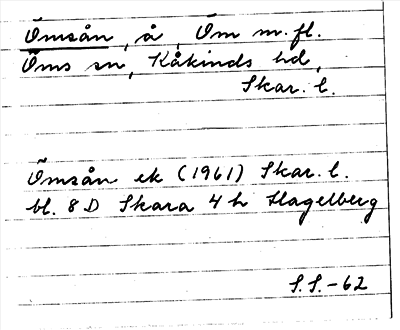 Ömsån, å, Öm m.fl.
Öms sn, Kåkinds hd,
Skar. l.
Ömsån ek (1961) Skar. l.
bl. 8 D Skara 4 h Hagelberg
S.S.-62